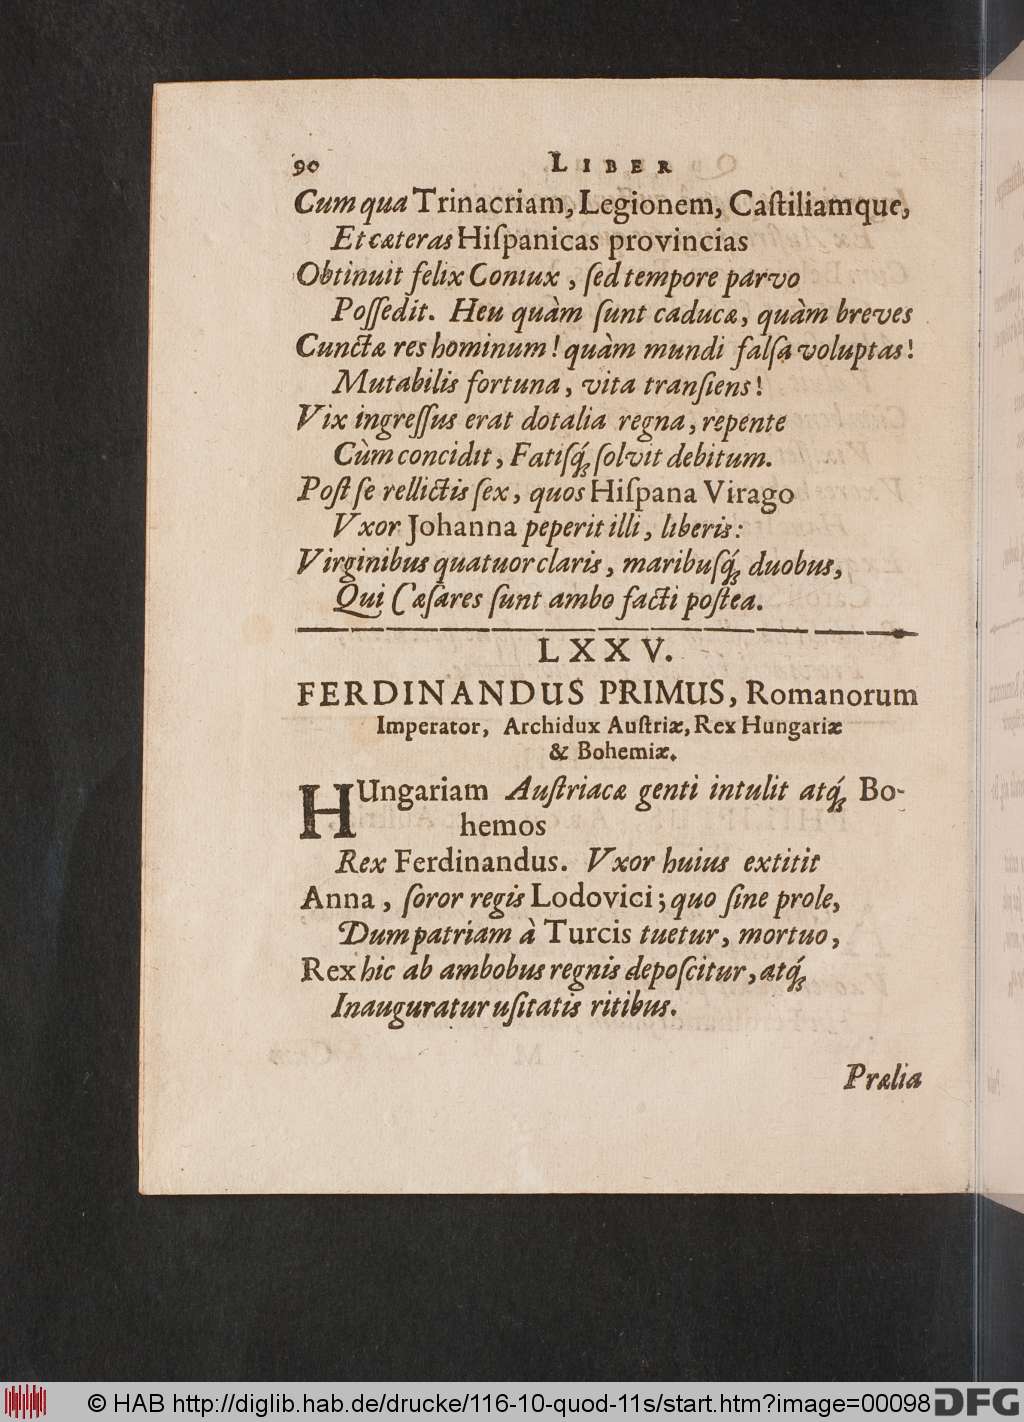 90 LIBER
Cum qua Trinacriam, Legionem, Caſtiliamque,
Et cæteras Hiſpanicas provincias
Obtinuit felix Coniux, ſed tempore parvo
Poſſedit. Heu quàm ſunt caducæ, quàm breves
Cunctæ res hominum! quàm mundi falſa voluptas!
Mutabilis fortuna, vita tranſiens!
Vix ingreſſus erat dotalia regna, repente
Cùm concidit, Fatiſq́; ſolvit debitum.
Poſt ſe rellictis ſex, quos Hiſpana Virago
Vxor Johanna peperit illi, liberis:
Virginibus quatuor claris, maribuſq́; duobus,
Qui Cæſares ſunt ambo facti poſtea.
LXXV.
FERDINANDUS PRIMUS, Romanorum
Imperator, Archidux Auſtriæ, Rex Hungariæ
& Bohemiæ.
HUngariam Auſtriacæ genti intulit atq́; Bo-
hemos
Rex Ferdinandus. Vxor huius extitit
Anna, ſoror regis Lodovici; quo ſine prole,
Dum patriam à Turcis tuetur, mortuo,
Rex hic ab ambobus regnis depoſcitur, atq́;
Inauguratur uſitatis ritibus.
Prælia
© HAB http://diglib.hab.de/drucke/116-10-quod-11s/start.htm?image=00098 DFG